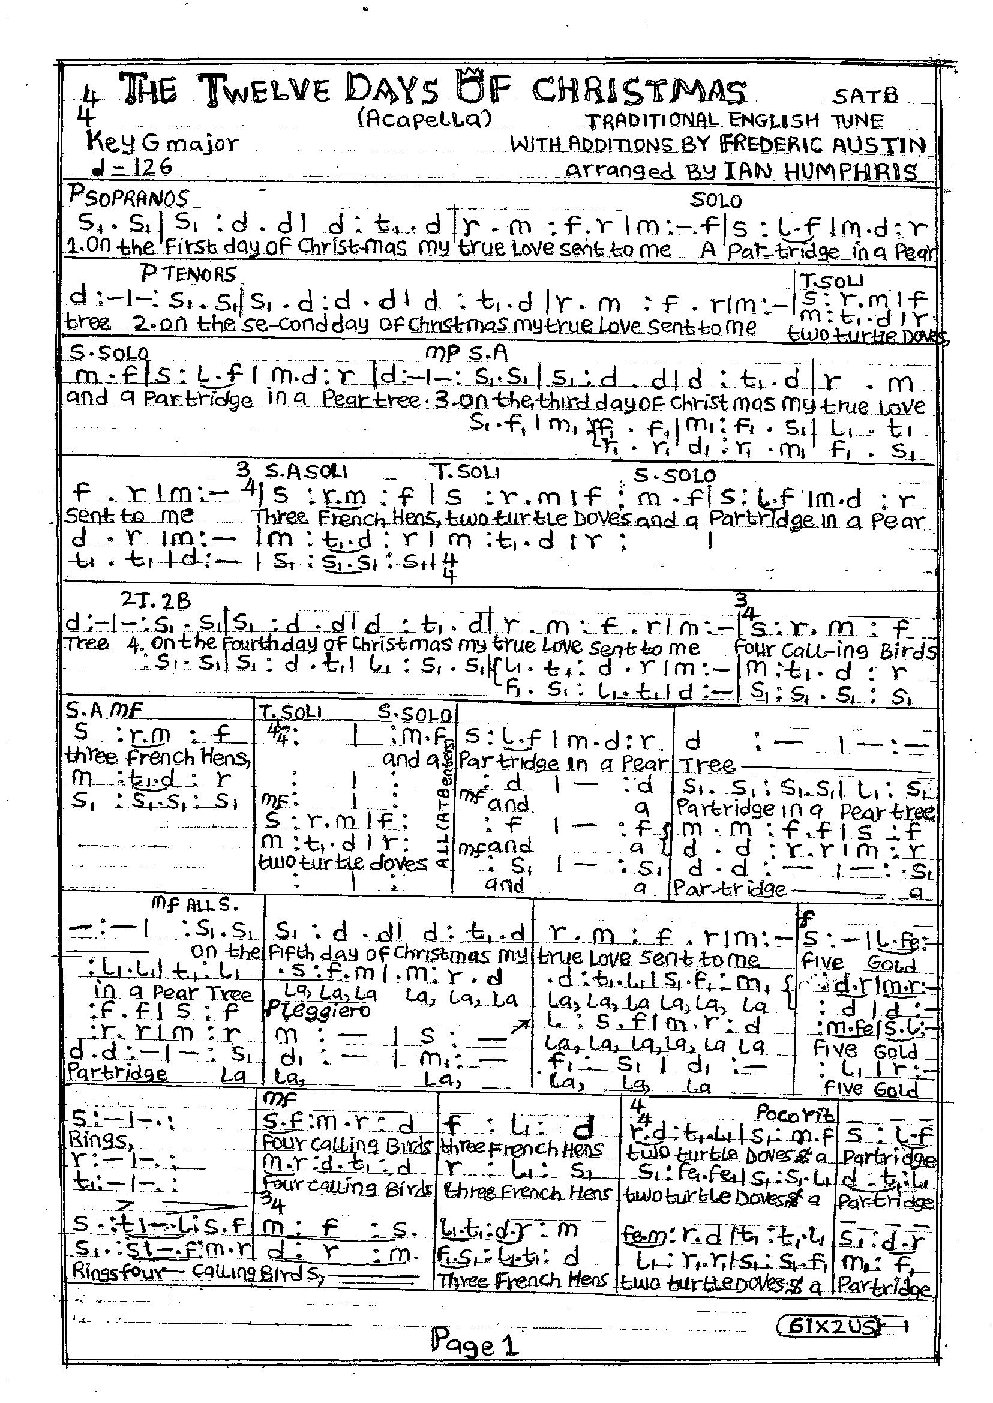 THE TWELVE DAYS OF CHRISTMAS
4
4
(Acapella)
SATB
TRADITIONAL ENGLISH TUNE
Key G major
WITH ADDITIONS BY FREDERIC AUSTIN
d = 126
arranged BY IAN HUMPHRIS
P SOPRANOS SOLO
S₁ . S₁| S₁ : d . d| d : t₁ . d |r . m : f . r |m :- . f|s : L . f |m . d : r
1. On the First day of Christ-mas my true Love sent to me A Par-tridge in a Pear
P TENORS T. SOLI
d :-|- : S₁ . S₁|S₁ . d : d . d| d : t₁ . d |r . m : f . r|m :-|s : r . m | f
m : t₁ . d | r
tree 2. on the se-cond day of Christmas my true Love sent to me two turtle Doves
S. SOLO mp S.A
m . f|s : L . f | m . d : r |d :-|- : S₁ . S₁|S₁ : d . d|d : t₁ . d |r . m
and a Partridge in a Pear tree. 3. on the third day of Christmas my true Love
S₁ . f₁| m₁ . f₁ : f₁ . f₁|m₁ : f₁ . S₁| L₁ . t₁
r₁ . r₁| d₁ : r₁ . m₁| f₁ . S₁
3 S.A SOLI T. SOLI S. SOLO
4
f . r |m :- | s : r . m : f | s : r . m | f : m . f|s : L . f |m . d : r
sent to me Three French Hens, two turtle Doves and a Partridge in a Pear
d . r |m :- |m : t₁ . d : r | m : t₁ . d | r : |
t₁ . t₁ | d :- | S₁ : S₁ . S₁ : S₁| 4
4
2T. 2B 3
4
d :-|- : S₁ . S₁|S₁ : d . d|d : t₁ . d|r . m : f . r|m :-|s : r . m : f
Tree 4. On the Fourth day of Christmas my true Love sent to me Four Call-ing Birds
: S₁ . S₁|S₁ : d . t₁| L₁ : S₁ . S₁|L₁ . t₁ : d . r |m :-|m : t₁ . d : r
f₁ . S₁ : L₁ . t₁|d :-|S₁ : S₁ . S₁ : S₁
S.A mf T. SOLI S. SOLO
s : r . m : f 4 4 : | : m . f s : L . f | m . d : r d : - | - : -
three French Hens, and a Partridge in a Pear Tree
m : t₁ . d : r : d | - : d S₁ . S₁ : S₁ . S₁| L₁ : S₁
S₁ : S₁ . S₁ : S₁ mf: mf and a Partridge in a Pear tree
s : r . m | f : : f | - : f m . m : f . f | s : f
m : t₁ . d | r : mf and a d . d : r . r | m : r
two turtle doves ALL (ATB enters) : S₁ | - : S₁ d . d : - | - : S₁
and a Par-tridge a
mf ALL S. f
- : - | : S₁ . S₁ S₁ : d . d| d : t₁ . d r . m : f . r |m :- s : - | L . fe :-
on the Fifth day of Christmas my true Love sent to me five Gold
: L₁ . L₁| t₁ : L₁ . s : f . m | . m : r . d . d : t₁ . L₁|S₁ . f₁ : m₁ : d . r | m . r :-
in a Pear Tree La, La, La La, La, La La, La, La, La, La, La : d | d :-
: f . f | s : f P leggiero L : s . f| m . r : d : m . fe | s . L :-
: r . r | m : r m : - | s : - La, La, La, La, La La five Gold
d . d :- | - : S₁ d₁ : - | m₁ : - f₁ : S₁ | d₁ :- : L₁ | r :-
Partridge La La, La, La, La, La five Gold
mf 4
4 Poco rit
s :-|- . : s . f : m . r : d f : L₁ : d r . d : t₁ . L₁|S₁ : m . f s : L . f
Rings, Four calling Birds three French Hens two turtle Doves & a Partridge
r :-|- . : m . r : d . t₁ : d r : L₁ : S₁ S₁ : fe₁ . fe₁|S₁ : S₁ . L₁ d . t₁ : L₁
t₁ :-|- . : Four calling Birds three French Hens two turtle Doves & a Partridge
3
4
s . : t₁ - . L₁ : s . f m : f : s . L₁ . t₁ : d . r : m fe . m : r . d |t₁ : t₁ . L₁ S₁ : d . r
S₁ . : S₁ - . f : m . r d : r : m . f₁ . S₁ : L₁ . t₁ : d L₁ : r . r |S₁ : S₁ . f₁ m₁ : f₁
Rings four calling Birds, Three French Hens two turtle Doves & a Partridge
61X2US
Page 1